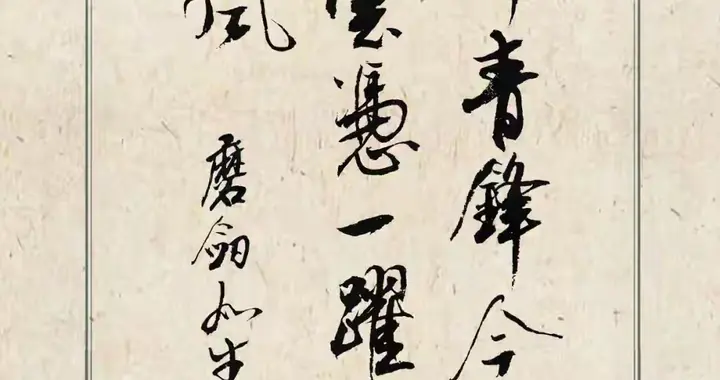 青鋒今
憑一躍
風
磨劍如生